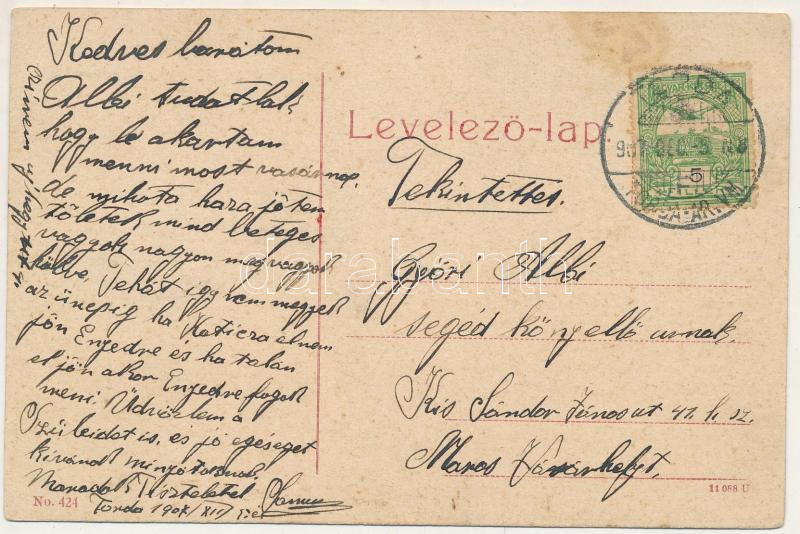 Kedves barátom
Albi tudatlak
hogy le akartam
menni most vasárnap
de mihota haza jöttem
tőletek mind beteges
vagyok nagyon meg vagyok
hűlve. Tehát így nem megyek
az ünnepig ha Katicza el nem
jön Enyedre és ha talán
el jön akor Enyedre fogok
meni. Üdvözlem a
Szüleidet is, és jó egéséget
kivánok minyájoknak
Maradok Tisztelettel
Torda 1907/XII/
No. 424
Levelező-lap.
Tekintettes
Győri Albi
segéd könyellő urnak.
Kis Sándor János ut 41. h. sz.
Maros Vásárhelyt.
11 088 U
TORDA
907 DEC. 5
darabanth